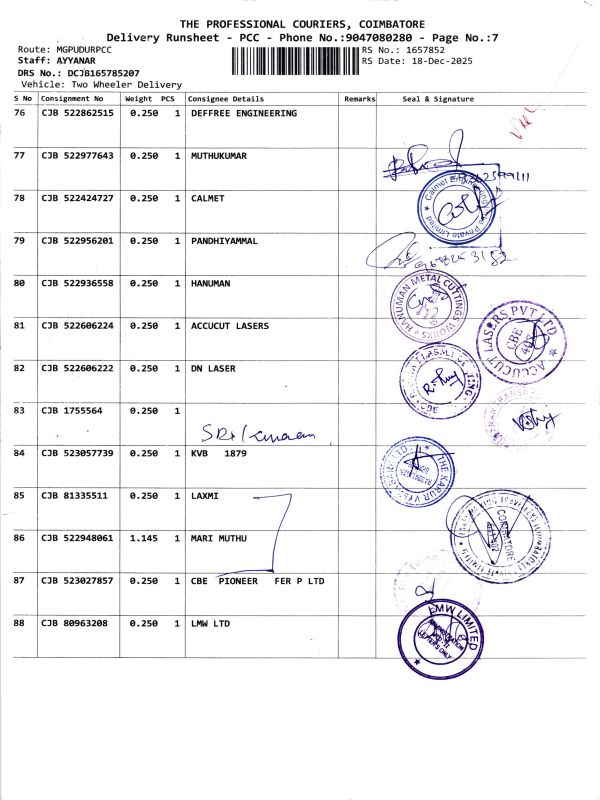 THE PROFESSIONAL COURIERS, COIMBATORE
Delivery Runsheet - PCC - Phone No.:9047080280 - Page No.:7
Route: MGPUDURPCC RS No.: 1657852
Staff: AYYANAR RS Date: 18-Dec-2025
DRS No.: DCJB165785207
Vehicle: Two Wheeler Delivery
S No Consignment No Weight PCS Consignee Details Remarks Seal & Signature
76 CJB 522862515 0.250 1 DEFFREE ENGINEERING
77 CJB 522977643 0.250 1 MUTHUKUMAR
78 CJB 522424727 0.250 1 CALMET
Calmet Engineering Private Limited
79 CJB 522956201 0.250 1 PANDHIYAMMAL
80 CJB 522936558 0.250 1 HANUMAN
HANUMAN METAL CUTTINGS WORKS
81 CJB 522606224 0.250 1 ACCUCUT LASERS
ACCUCUT LASERS PVT LTD
CBE
82 CJB 522606222 0.250 1 DN LASER
83 CJB 1755564 0.250 1
84 CJB 523057739 0.250 1 KVB 1879
THE KARUR VYSYA
85 CJB 81335511 0.250 1 LAXMI
COIMBATORE
86 CJB 522948061 1.145 1 MARI MUTHU
87 CJB 523027857 0.250 1 CBE PIONEER FER P LTD
88 CJB 80963208 0.250 1 LMW LTD
LMW LIMITED
LETTERS ONLY